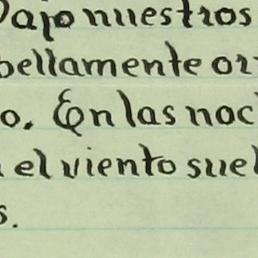 Bajo nuestros
bellamente or
o. En las noc
el viento suel
s.